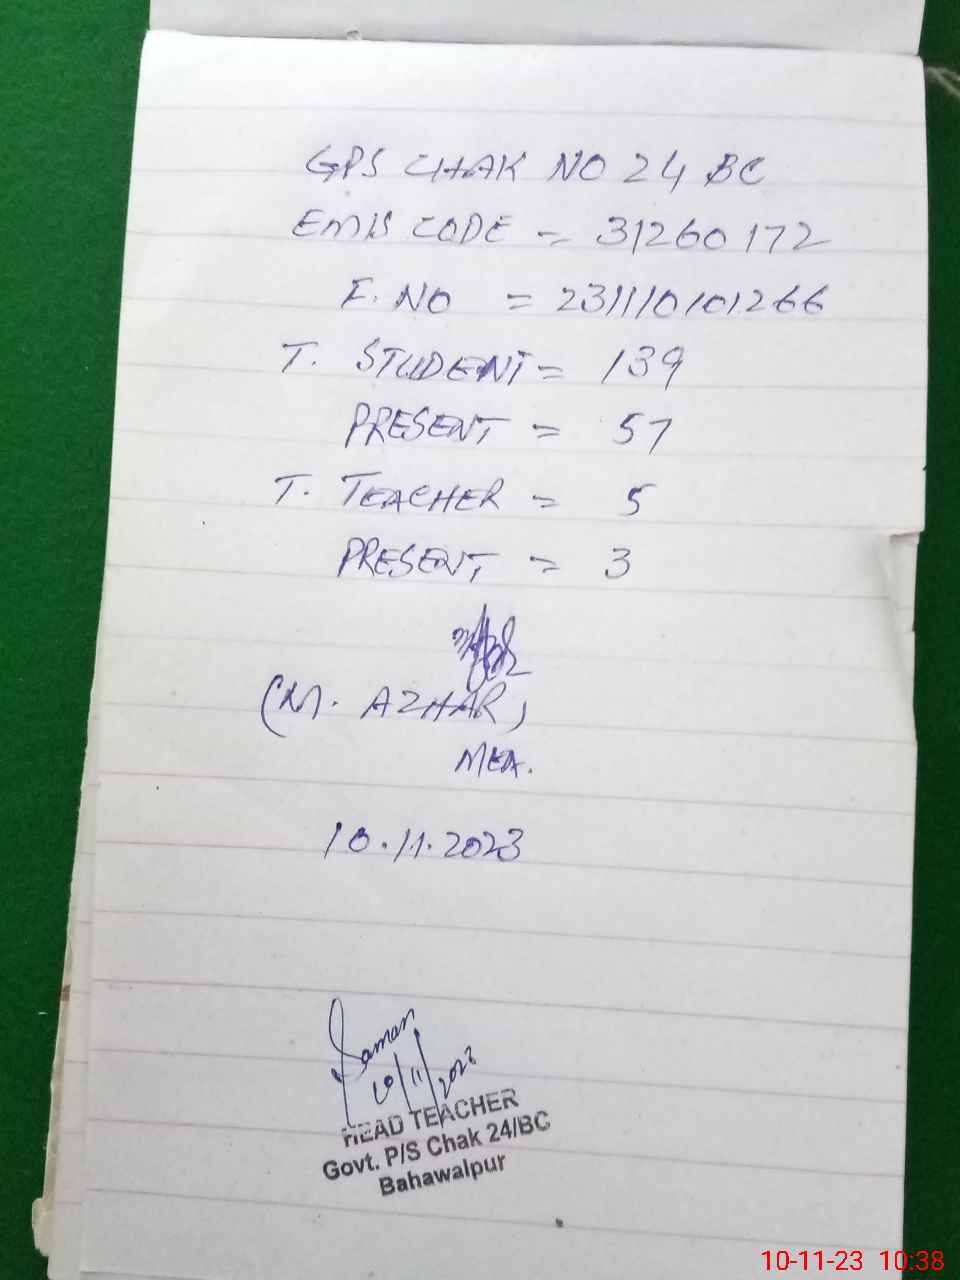 GPS CHAK NO 24 BC
EMIS CODE = 31260172
E.NO = 231110101266
T. STUDENT = 139
PRESENT = 57
T. TEACHER = 5
PRESENT = 3
(M. AZHAR)
MEA.
10.11.2023
Saman
10/11/2023
HEAD TEACHER
Govt. P/S Chak 24/BC
Bahawalpur
10-11-23 10:38